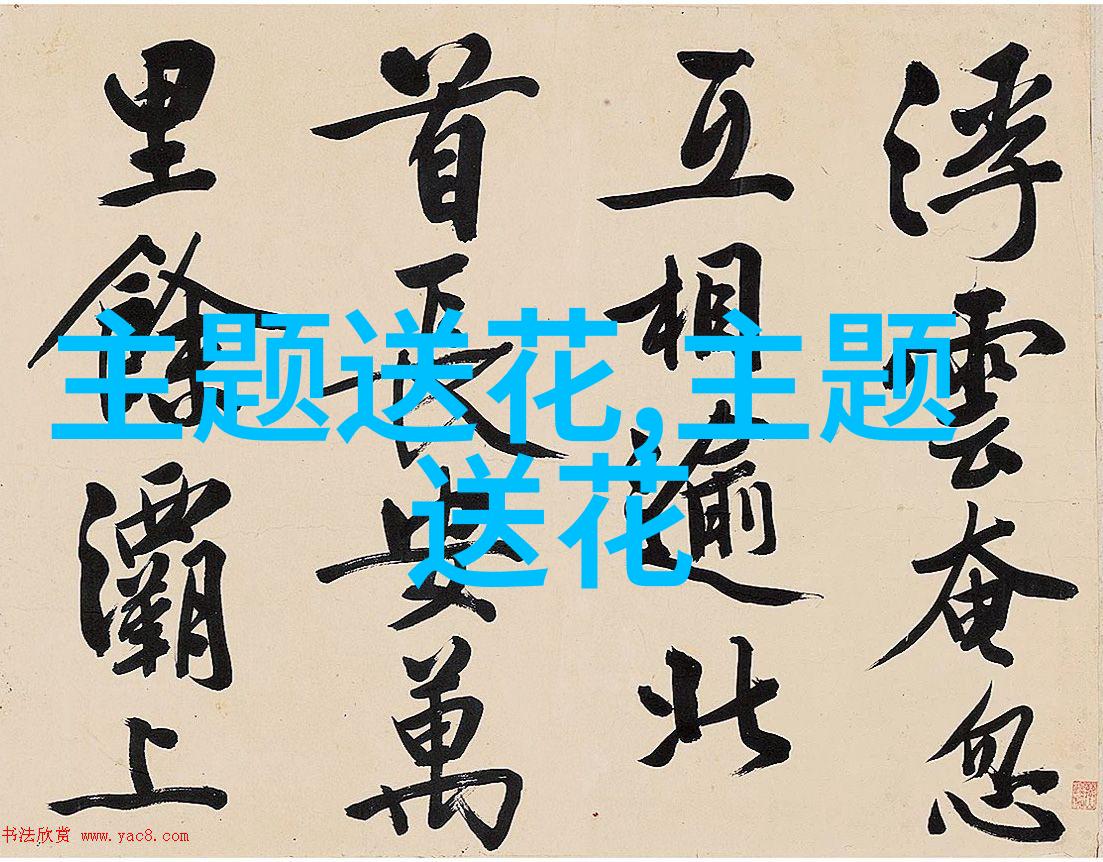 浮雲奄忽
互相逾北
首長安萬
里餘灞上
主题送花,主题
送花
书法欣赏 www.yac8.com